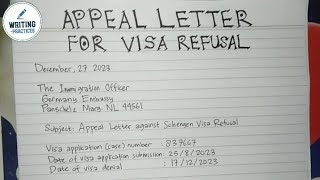 WRITING
PRACTICES
APPEAL LETTER
FOR VISA REFUSAL
December, 27 2023
The Immigration Officer
Germany Embassy
NL 49561
Subject: Appeal Letter against Schengen Visa Refusal
Visa application (case) number : 837667
Date of visa application submission : 25/8/2023
Date of visa denial : 17/12/2023